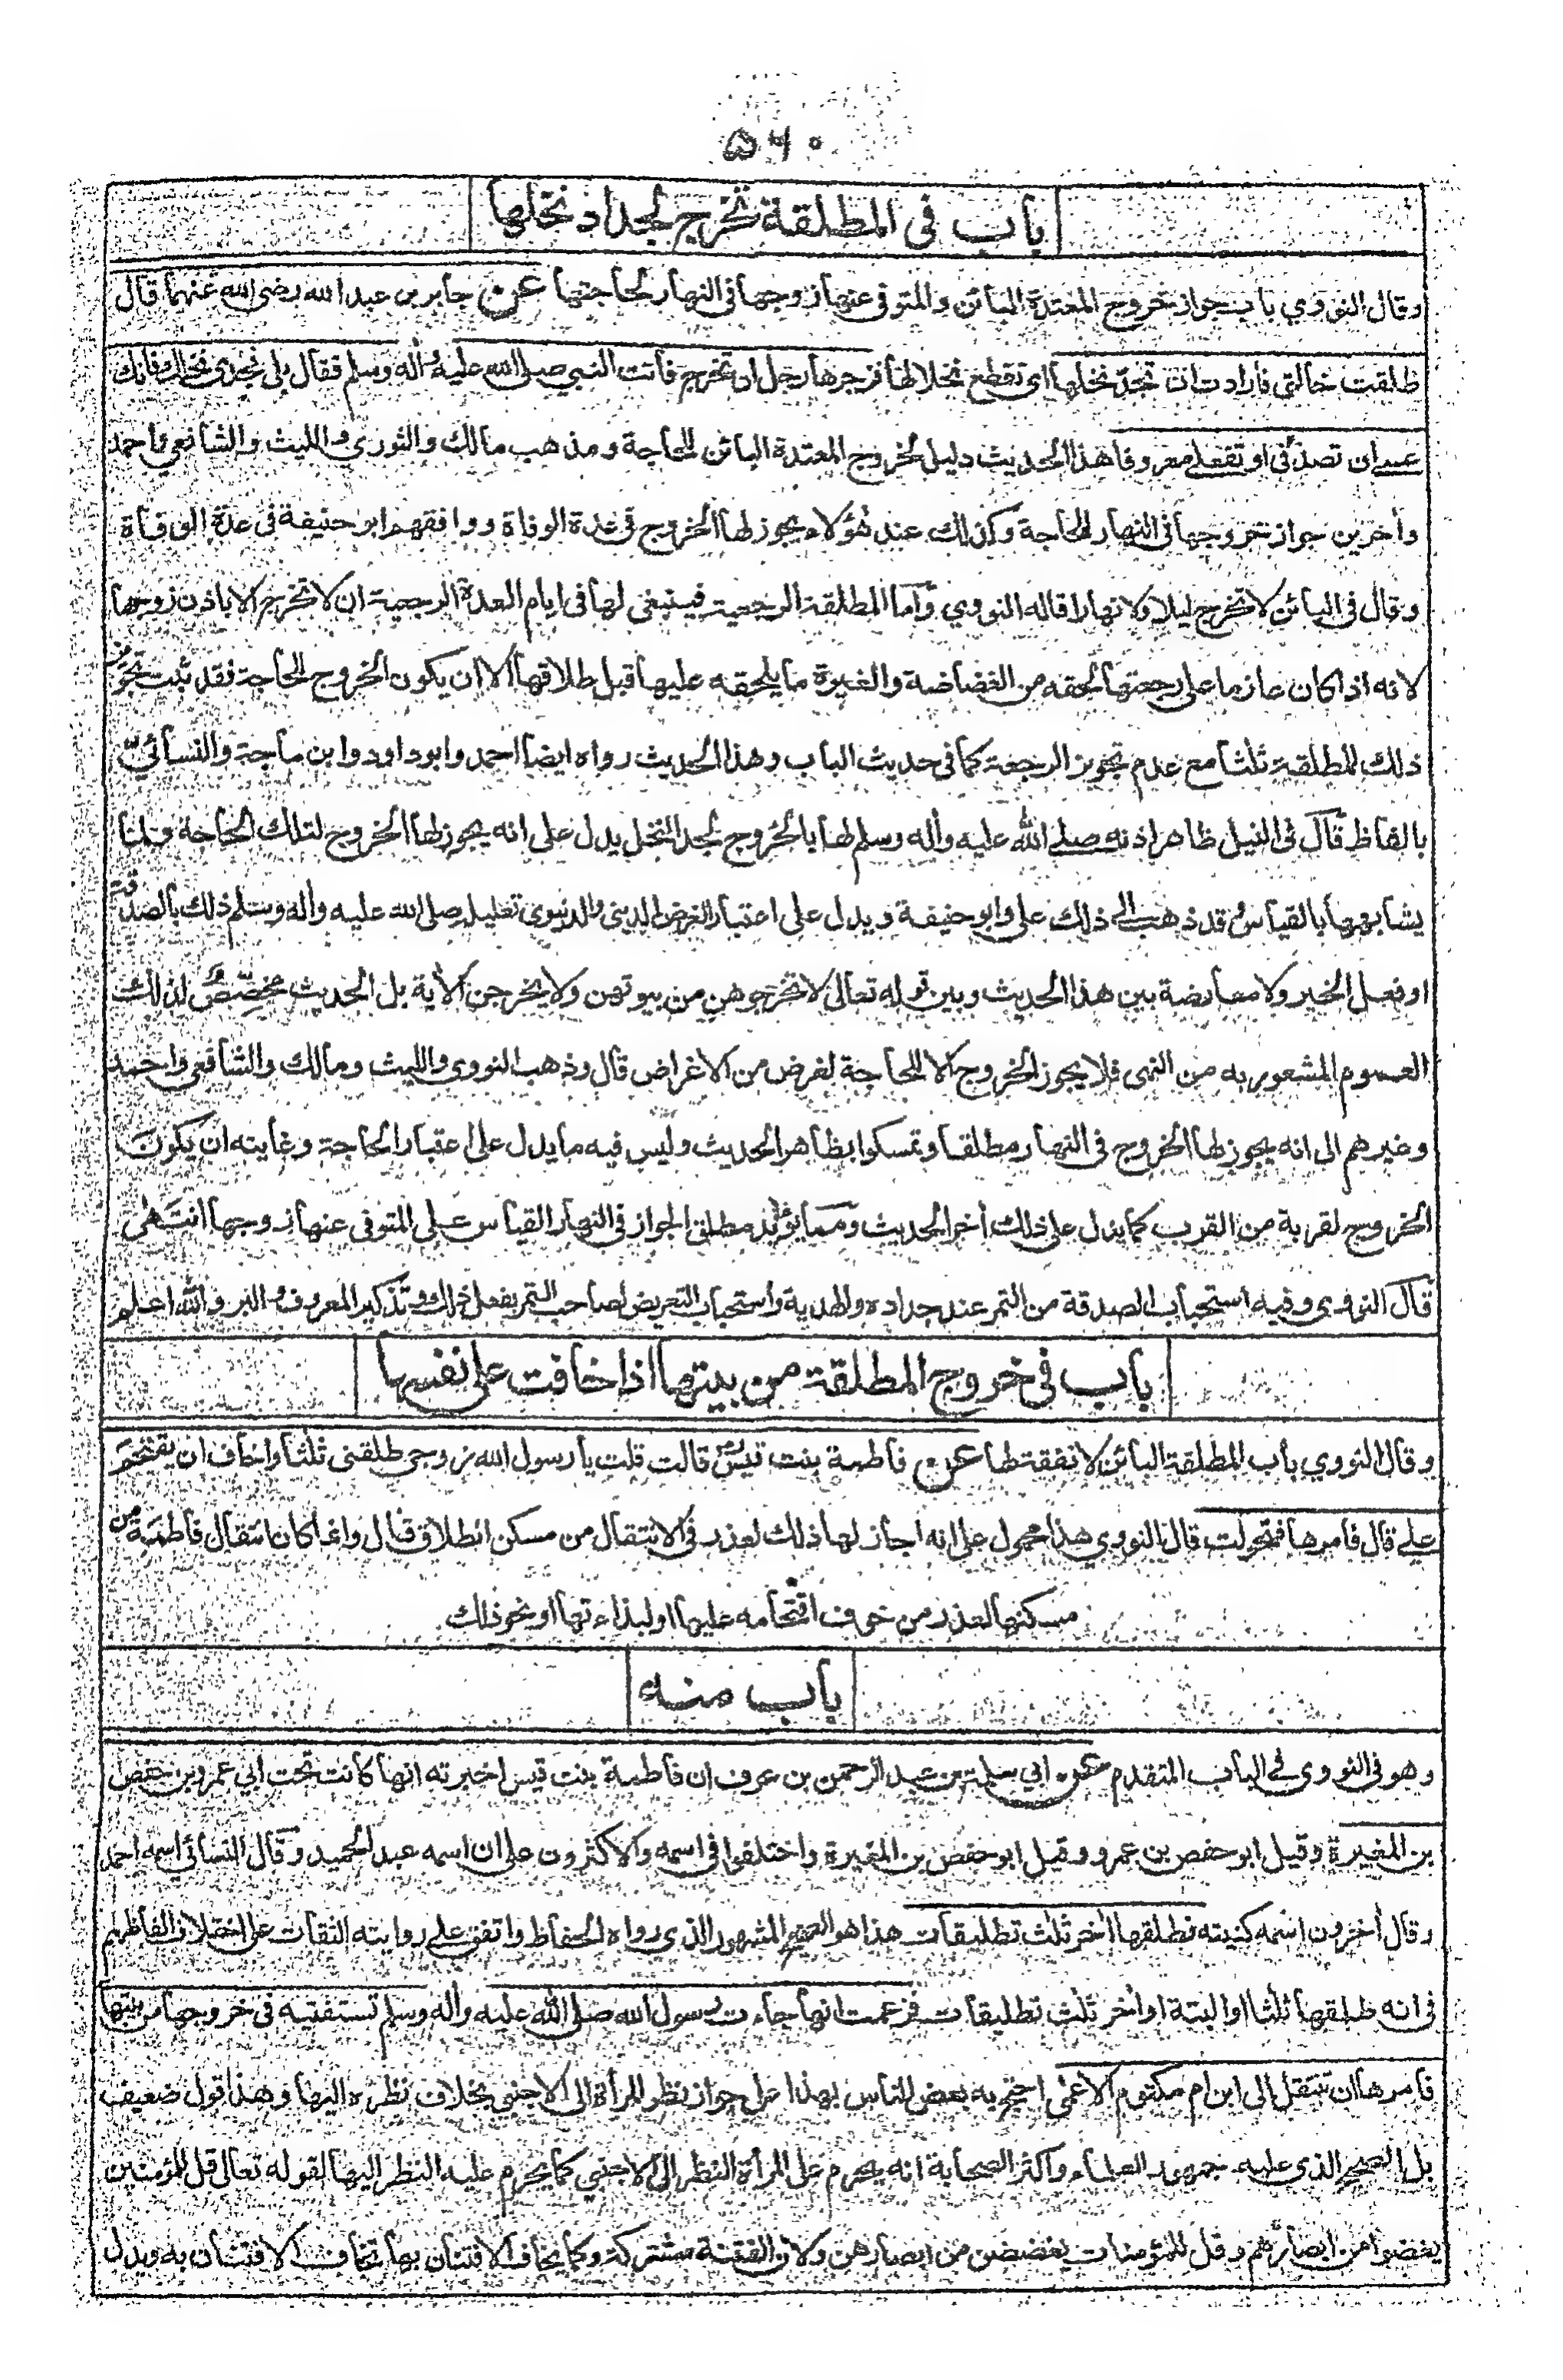 ٥٦٠
باب في المطلقة تخرج لجداد نخلها
وقال النووي باب جواز خروج المعتدة البائن والمتوفى عنها زوجها في النهار لحاجتها عن جابر بن عبد الله رضي الله عنهما قال
طلقت خالتي فارادت ان تجد نخلها اي تقطع نخلا لها فزجرها رجل ان تخرج فاتت النبي صلى الله عليه وأله وسلم فقال بلى فجدي نخلك فانك
عسى ان تصدقي او تفعلي معروفا هذا الحديث دليل لخروج المعتدة البائن للحاجة ومذهب مالك والثوري والليث والشافعي واحمد
وأخرين جواز خروجها في النهار للحاجة وكذلك عند هؤلاء يجوز لها الخروج في عدة الوفاة ووافقهم ابو حنيفة في عدة الوفاة
وقال في البائن لا تخرج ليلا ولا نهارا قاله النووي وأما المطلقة الرجعية فينبغي لها في ايام العدة الرجعية ان لا تخرج الا باذن زوجها
لانه اذا كان عازما على رجعتها لحقه من الغضاضة والغيرة ما يلحقه عليها قبل طلاقها الا ان يكون الخروج للحاجة فقد ثبت تجويز
ذلك للمطلقة ثلثا مع عدم تجويز الرجعة كما في حديث الباب وهذا الحديث رواه ايضا احمد وابو داود وابن ماجة والنسائي
بالفاظ قال في النيل ظاهر اذنه صلى الله عليه وأله وسلم لها بالخروج لجد النخل يدل على انه يجوز لها الخروج لتلك الحاجة ولما
يشابهها بالقياس وقد ذهب الى ذلك علي وابو حنيفة ويدل على اعتبار الغرض الديني والدنيوي تعليله صلى الله عليه وأله وسلم ذلك بالصدقة
او فعل الخير ولا معارضة بين هذا الحديث وبين قوله تعالى لا تخرجوهن من بيوتهن ولا يخرجن الأية بل الحديث مخصص لذلك
العموم المشعور به من النهي فلا يجوز الخروج الا للحاجة لغرض من الاغراض قال وذهب النووي والليث ومالك والشافعي واحمد
وغيرهم الى انه يجوز لها الخروج في النهار مطلقا وتمسكوا بظاهر الحديث وليس فيه ما يدل على اعتبار الحاجة وغايته ان يكون
الخروج لقربة من القرب كما يدل على ذلك أخر الحديث ومما يؤيد مطلق الجواز في النهار القياس على المتوفى عنها زوجها انتهى
قال النووي وفيه استحباب الصدقة من التمر عند جداده والهدية واستحباب التعريض لصاحب التمر بفعل ذلك وتذكير المعروف والبر والله اعلم
باب في خروج المطلقة من بيتها اذا خافت على نفسها
وقال النووي باب المطلقة البائن لا نفقة لها عن فاطمة بنت قيس قالت قلت يا رسول الله زوجي طلقني ثلثا واخاف ان يقتحم
علي قال فامرها فتحولت قال النووي هذا محمول على انه اجاز لها ذلك لعذر في الانتقال من مسكن الطلاق قال وانما كان انتقال فاطمة من
مسكنها لعذر من خوف اقتحامه عليها او لبذاءتها او نحو ذلك
باب منه
وهو في النووي في الباب المتقدم عن ابي سلمة بن عبد الرحمن بن عوف ان فاطمة بنت قيس اخبرته انها كانت تحت ابي عمرو بن حفص
بن المغيرة وقيل ابو حفص بن عمرو وقيل ابو حفص بن المغيرة واختلفوا في اسمه والاكثرون على ان اسمه عبد الحميد وقال النسائي اسمه احمد
وقال أخرون اسمه كنيته فطلقها أخر ثلث تطليقات هذا هو الصحيح المشهور الذي رواه الحفاظ واتفق على روايته الثقات على اختلاف الفاظهم
في انه طلقها ثلثا او البتة او أخر ثلث تطليقات فزعمت انها جاءت رسول الله صلى الله عليه وأله وسلم تستفتيه في خروجها من بيتها
فامرها ان تنتقل الى ابن ام مكتوم الاعمى احتج به بعض الناس بهذا على جواز نظر المرأة الى الاجنبي بخلاف نظره اليها وهذا قول ضعيف
بل الصحيح الذي عليه جمهور العلماء واكثر الصحابة انه يحرم على المرأة النظر الى الاجنبي كما يحرم عليه النظر اليها لقوله تعالى قل للمؤمنين
يغضوا من ابصارهم وقل للمؤمنات يغضضن من ابصارهن ولان الفتنة مشتركة وكما يخاف الافتتان بها تخاف الافتتان به ويدل